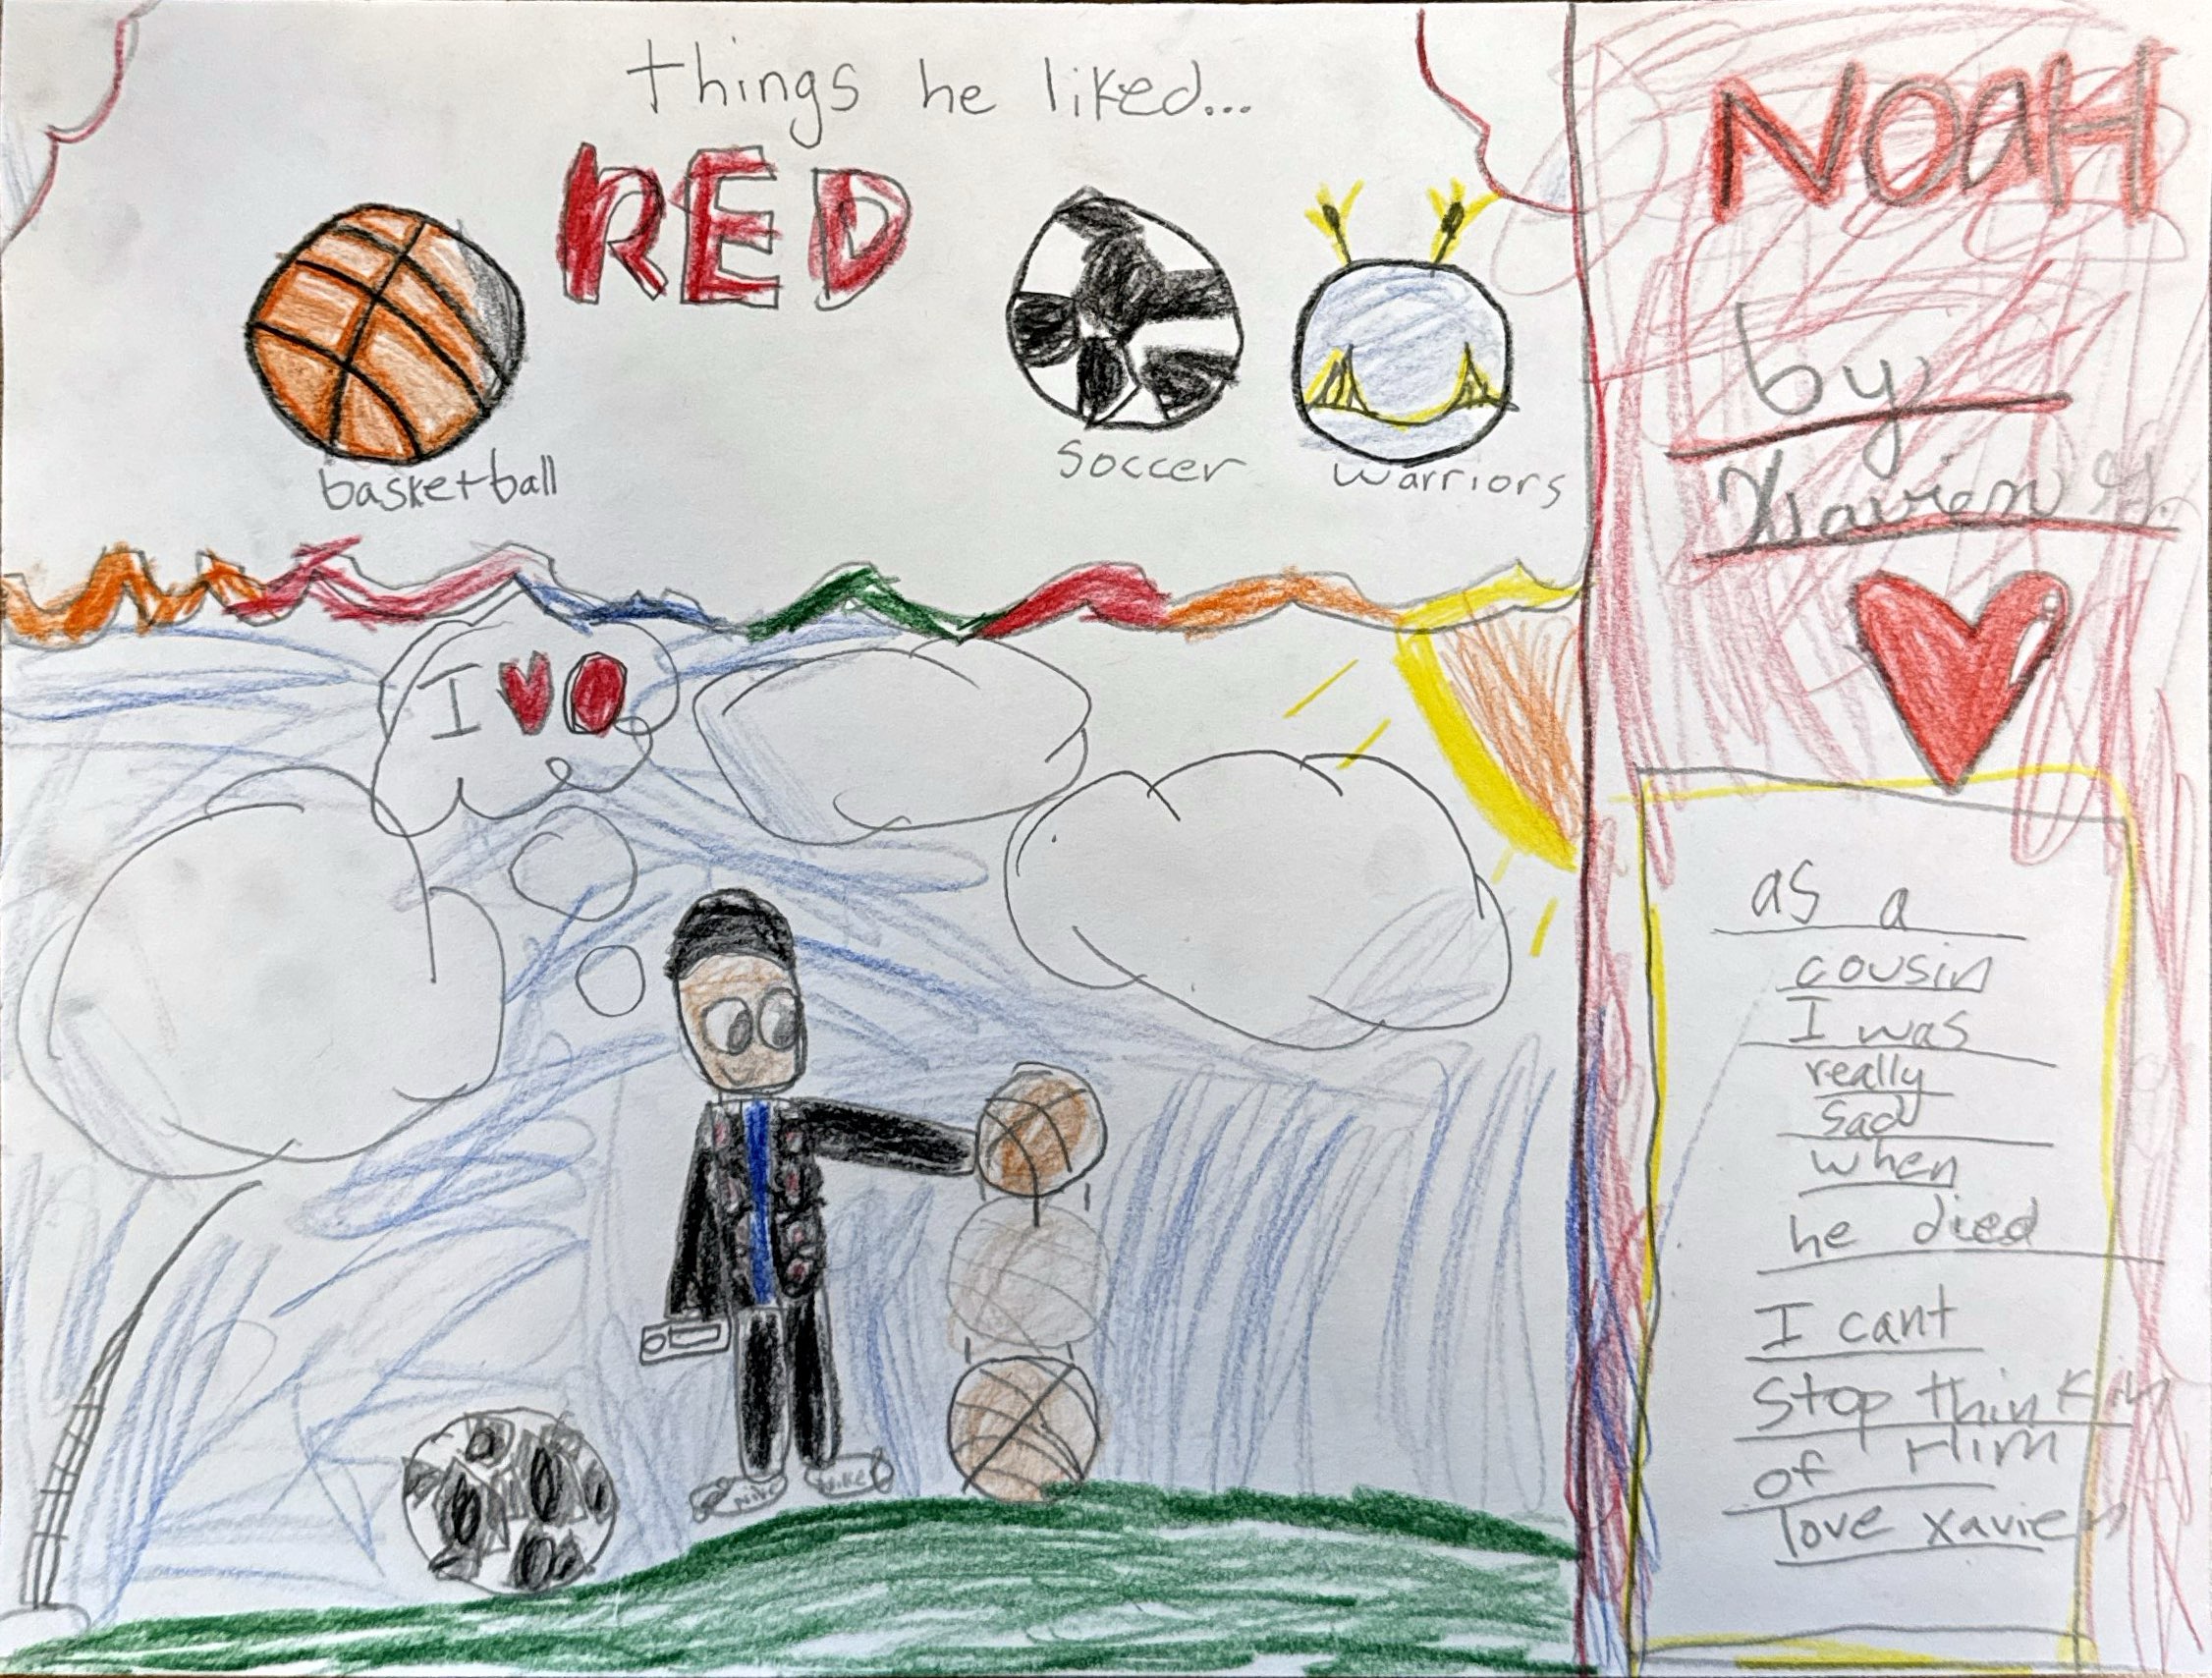 things he liked...
RED
basketball
soccer
warriors
I
Nike
Nike
NOaH
by
Xavier G.
as a
cousin
I was
really
sad
when
he died
I cant
Stop thinkin
of Him
love xavier